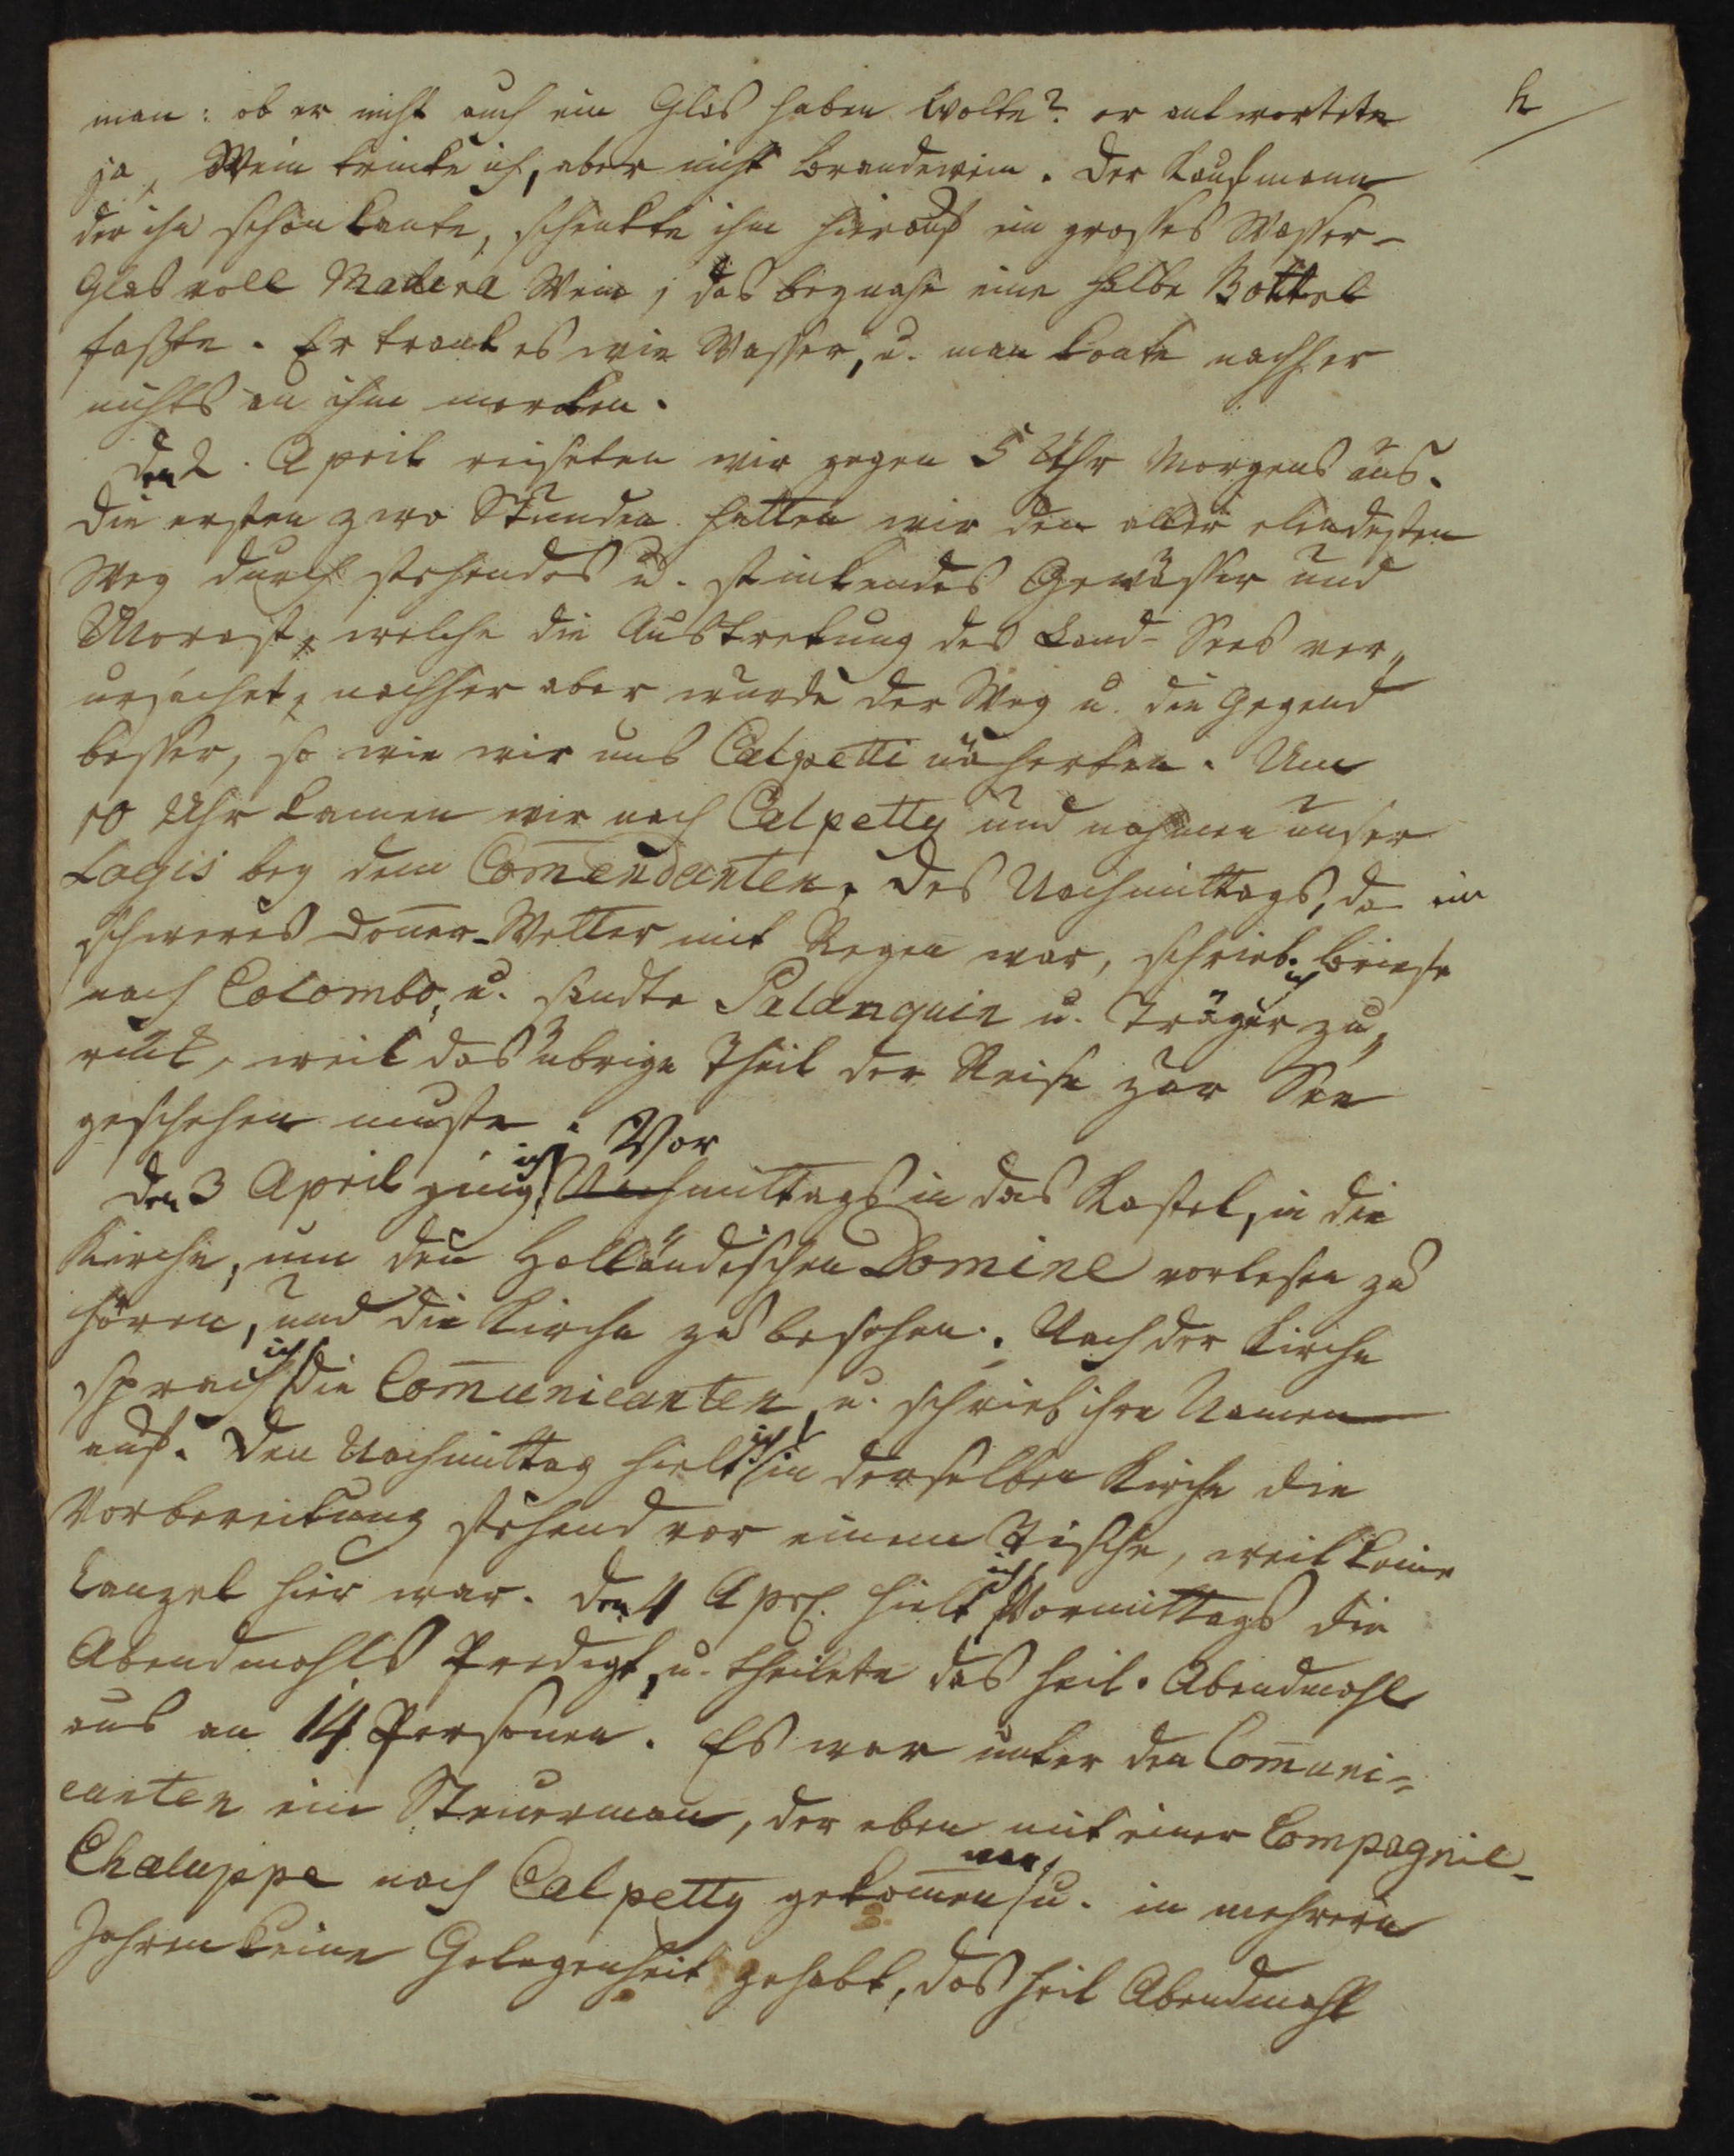 man: ob er nicht auch ein Glas haben wolte? er antwortete
ja, Wein trinke ich, aber nicht brandewein. Der Kaufmann
der ihn schon kante, schenkte ihm hierauf ein grosses Wasser-
Glas voll Madera Wein, das beynahe eine halbe Bottel
fasste. Er trank es wie Wasser, u. man konte nachher
nichts an ihm merken.
Den 2. April reiseten wir gegen 5 Uhr Morgens aus.
Die ersten zwo Stunden hatten wir den aller elendesten
Weg durch stehendes u. stinkendes Gewässer und
Morast, welche die Austretung des Land-Sees ver„
ursachet, nachher aber wurde der Weg u. die Gegend
besser, so wie wir uns Calpetti näherten. Um
10 Uhr kamen wir nach Calpetty und nahmen unser
Logis bey dem Com̄endanten. Des Nachmittags, da ein
schweres Don̄er-Wetter mit Regen war, schrieb ich briefe
nach Colombo, u. sandte Palanquin u. Träger zu„
rück, weil das übrige Theil der Reise zur See
geschehen muste.
Den 3 April ging ich Vor Nachmittags in das Kastel, in die
Kirche, um den Holländischen Domine vorlesen zu
hören, und die Kirche zu besehen. Nach der Kirche
sprach ich die Com̄unicanten, u. schrieb ihre Namen
auf. Den Nachmittag hielt ich in derselben Kirche die
Vorbereitung stehend vor einem Tische, weil keine
Canzel hier war. Den 4 Apr. hielt ich Vormittags die
Abendmahls Predigt, u. theilete das heil. Abendmahl
aus an 14 Personen. Es war unter den Com̄uni-
canten ein Steuerman, der eben mit einer Compagnie-
Chaluppe nach Calpetty gekom̄en war, u. in mehrern
Jahren keine Gelegenheit gehabt, das heil Abendmahl